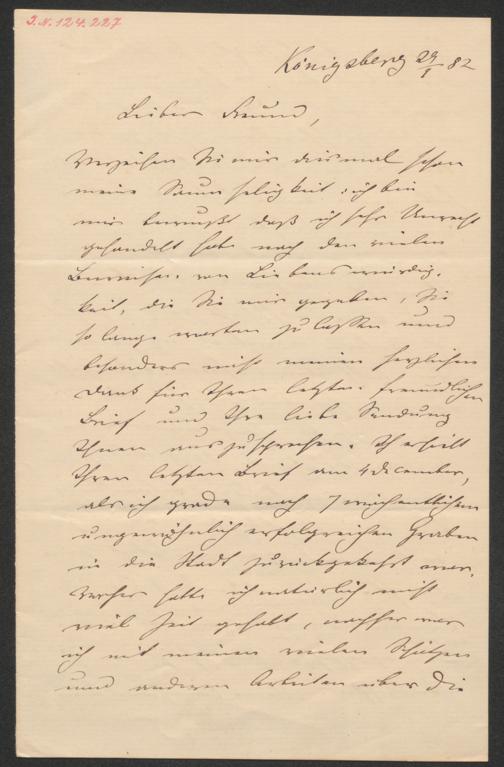 J.N. 124.227
Königsberg 29/1 82
Lieber Freund,
Verzeihen Sie mir diesmal schon
meine Saumseligkeit; ich bin
mir bewußt daß ich sehr Unrecht
gehandelt habe nach den vielen
Beweisen von Liebenswürdig-
keit, die Sie mir gegeben, Sie
so lange warten zu lassen und
besonders nicht meinen herzlichen
Dank für Ihren letzten freundlichen
Brief und Ihre liebe Sendung
Ihnen auszusprechen. Ich erhielt
Ihren letzten Brief am 4 December,
als ich grade nach 7 wöchentlichem
ungewöhnlich erfolgreichen Graben
in die Stadt zurückgekehrt war.
Vorher hatte ich natürlich nicht
viel Zeit gehabt, nachher war
ich mit meinen vielen Schätzen
und anderen Arbeiten über die